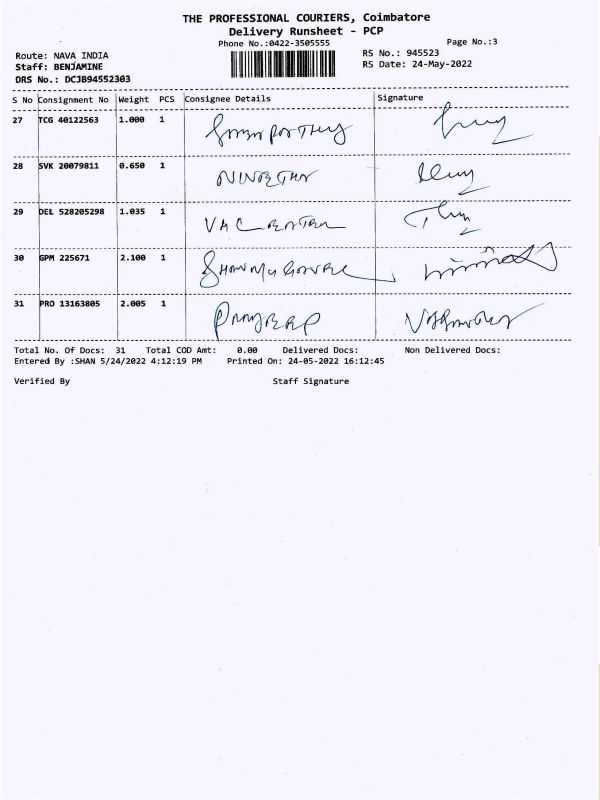 THE PROFESSIONAL COURIERS, Coimbatore
Delivery Runsheet - PCP
Phone No.:0422-3505555 Page No.:3
Route: NAVA INDIA RS No.: 945523
Staff: BENJAMINE RS Date: 24-May-2022
DRS No.: DCJB94552303
S No Consignment No Weight PCS Consignee Details Signature
27 TCG 40122563 1.000 1
28 SVK 20079811 0.650 1
29 DEL 528205298 1.035 1
30 GPM 225671 2.100 1
31 PRO 13163805 2.005 1
Total No. Of Docs: 31 Total COD Amt: 0.00 Delivered Docs: Non Delivered Docs:
Entered By :SHAN 5/24/2022 4:12:19 PM Printed On: 24-05-2022 16:12:45
Verified By Staff Signature